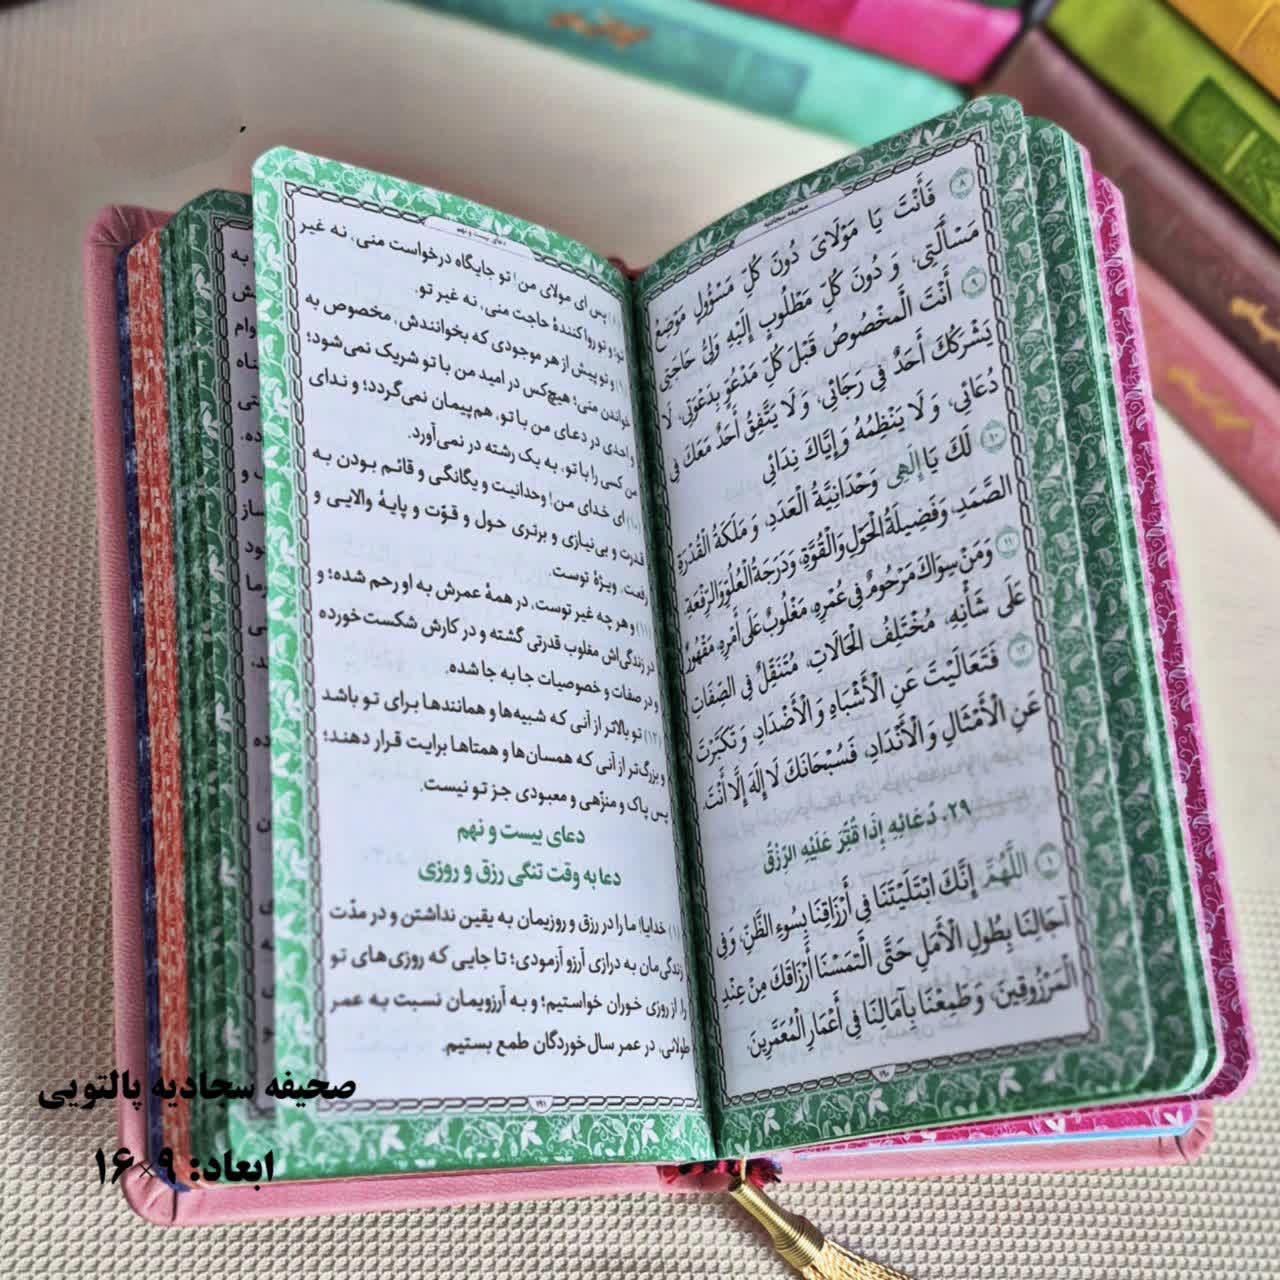 صحیفه سجادیه
۸ فَأَنْتَ يَا مَوْلَايَ دُونَ كُلِّ مَسْؤُولٍ مَوْضِعُ
مَسْأَلَتِي، وَ دُونَ كُلِّ مَطْلُوبٍ إِلَيْهِ وَلِيُّ حَاجَتِي
۹ أَنْتَ الْمَخْصُوصُ قَبْلَ كُلِّ مَدْعُوٍّ بِدَعْوَتِي، لَا
يَشْرَكُكَ أَحَدٌ فِي رَجَائِي، وَ لَا يَتَّفِقُ أَحَدٌ مَعَكَ فِي
دُعَائِي، وَ لَا يَنْظِمُهُ وَ إِيَّاكَ نِدَائِي
۱۰ لَكَ يَا إِلَهِي وَحْدَانِيَّةُ الْعَدَدِ، وَ مَلَكَةُ الْقُدْرَةِ
الصَّمَدِ، وَ فَضِيلَةُ الْحَوْلِ وَ الْقُوَّةِ، وَ دَرَجَةُ الْعُلُوِّ وَ الرِّفْعَةِ
۱۱ وَ مَنْ سِوَاكَ مَرْحُومٌ فِي عُمُرِهِ، مَغْلُوبٌ عَلَى أَمْرِهِ، مَقْهُورٌ
عَلَى شَأْنِهِ، مُخْتَلِفُ الْحَالَاتِ، مُتَنَقِّلٌ فِي الصِّفَاتِ
۱۲ فَتَعَالَيْتَ عَنِ الْأَشْبَاهِ وَ الْأَضْدَادِ، وَ تَكَبَّرْتَ
عَنِ الْأَمْثَالِ وَ الْأَنْدَادِ، فَسُبْحَانَكَ لَا إِلَهَ إِلَّا أَنْتَ.
۲۹. دُعَائِهِ إِذَا قُتِّرَ عَلَيْهِ الرِّزْقُ
۱ اللَّهُمَّ إِنَّكَ ابْتَلَيْتَنَا فِي أَرْزَاقِنَا بِسُوءِ الظَّنِّ، وَ فِي
آجَالِنَا بِطُولِ الْأَمَلِ حَتَّى الْتَمَسْنَا أَرْزَاقَكَ مِنْ عِنْدِ
الْمَرْزُوقِينَ، وَ طَمِعْنَا بِآمَالِنَا فِي أَعْمَارِ الْمُعَمَّرِينَ.
۱۹۰
دعای بیست و نهم
(۸) پس ای مولای من! تو جایگاه درخواست منی، نه غیر
تو؛ و تو رواکنندهٔ حاجت منی، نه غیر تو.
(۹) و تو پیش از هر موجودی که بخوانندش، مخصوص به
خواندن منی؛ هیچ‌کس در امید من با تو شریک نمی‌شود؛
و احدی در دعای من با تو، هم‌پیمان نمی‌گردد؛ و ندای
من کسی را با تو، به یک رشته در نمی‌آورد.
(۱۰) ای خدای من! وحدانیت و یگانگی و قائم بودن به
قدرت و بی‌نیازی و برتری حول و قوّت و پایهٔ والایی و
رفعت، ویژهٔ توست.
(۱۱) و هر چه غیر توست، در همهٔ عمرش به او رحم شده؛ و
در زندگی‌اش مغلوب قدرتی گشته و در کارش شکست‌خورده
و در صفات و خصوصیات جا به جا شده.
(۱۲) تو بالاتر از آنی که شبیه‌ها و همانندها برای تو باشد
و بزرگ‌تر از آنی که همسان‌ها و همتاها برایت قرار دهند؛
پس پاک و منزّهی و معبودی جز تو نیست.
دعای بیست و نهم
دعا به وقت تنگی رزق و روزی
(۱) خدایا! ما را در رزق و روزیمان به یقین نداشتن و در مدّت
زندگی‌مان به درازی آرزو آزمودی؛ تا جایی که روزی‌های تو
را، از روزی خوران خواستیم؛ و به آرزویمان نسبت به عمر
طولانی، در عمر سال‌خوردگان طمع بستیم.
۱۹۱
صحیفه سجادیه پالتویی
ابعاد: ۹×۱۶